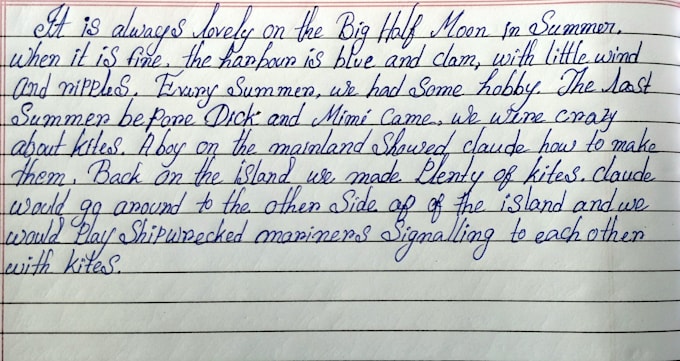 It is always lovely on the Big Half Moon in Summer.
when it is fine. the harbour is blue and clam, with little wind
and ripples. Evury Summer, we had Some hobby. The last
Summer bepore Dick and Mimi Came, we were crazy
about kites. A boy on the mainland Showed claude how to make
them. Back on the island we made Plenty of kites. Claude
would go around to the other Side of of the island and we
would Play Shipwrecked mariners Signalling to each other
with kites.